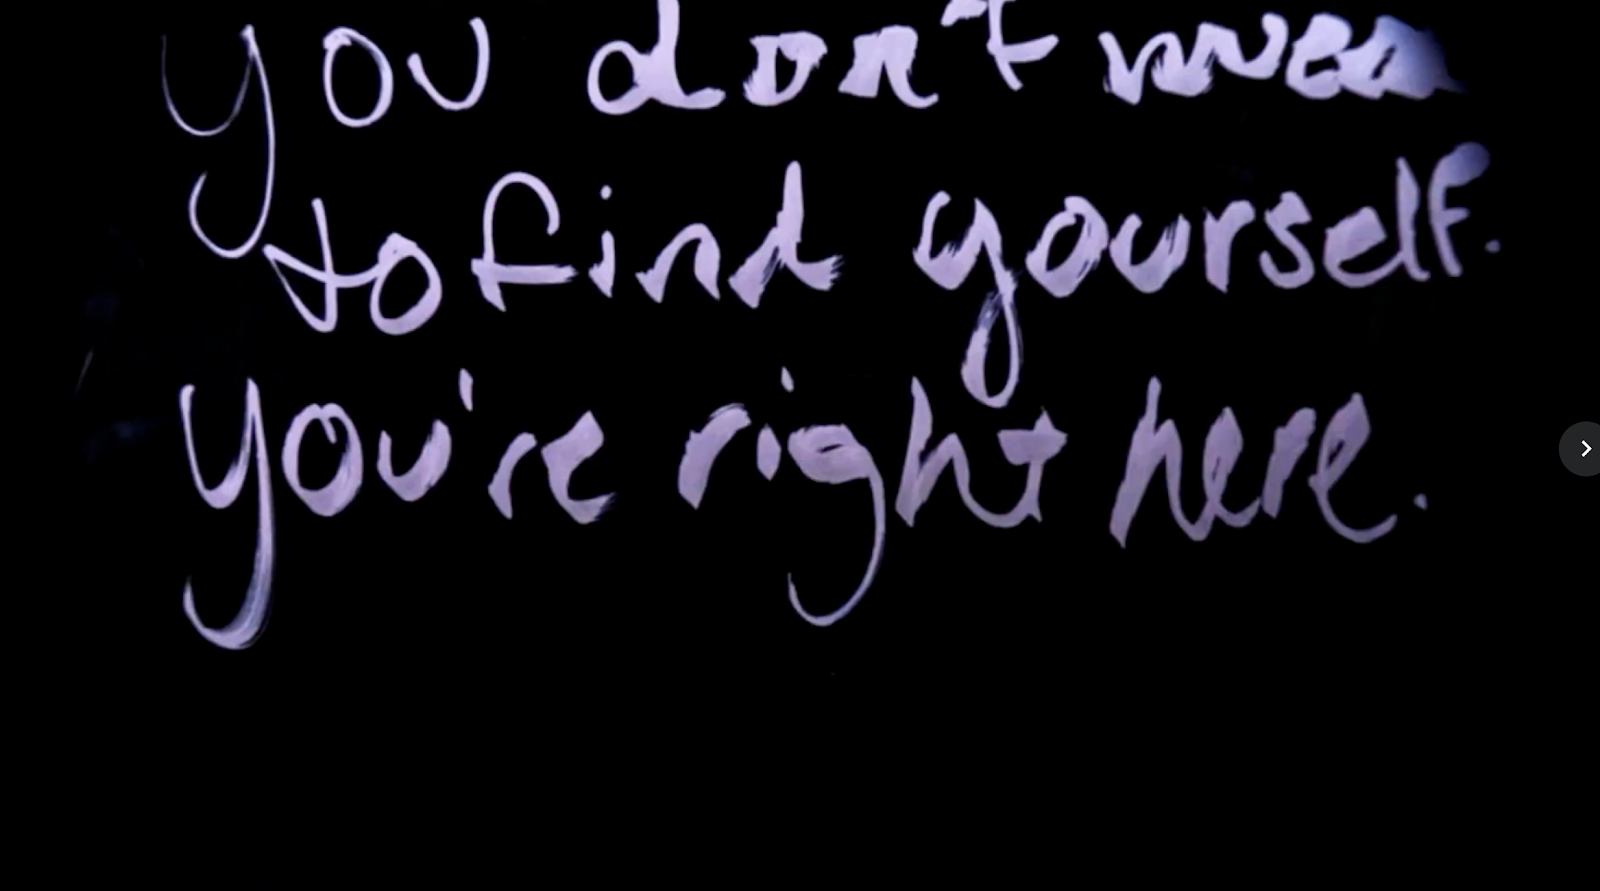 you don't need
to find yourself.
you're right here.